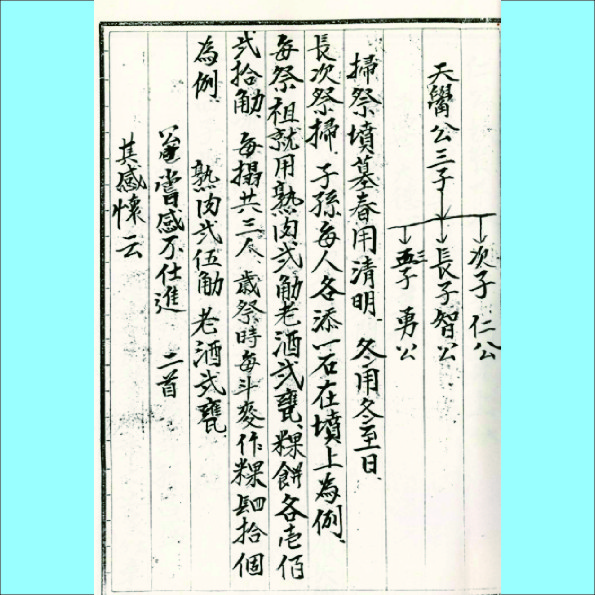 天公三子
次子 仁公
長子智公
三子 勇公
掃祭墳墓春用清明 冬用冬至日
長次祭掃 子孫每人各添一石在墳上為例
每祭祖就用熟肉弍觔老酒弍甕粿餅各壹佰
弍拾觔 每搨共三人 歲祭時每斗麥作粿肆拾個
為例 熟肉弍伍觔 老酒弍甕
嘗感不仕進 二首
其感懷云